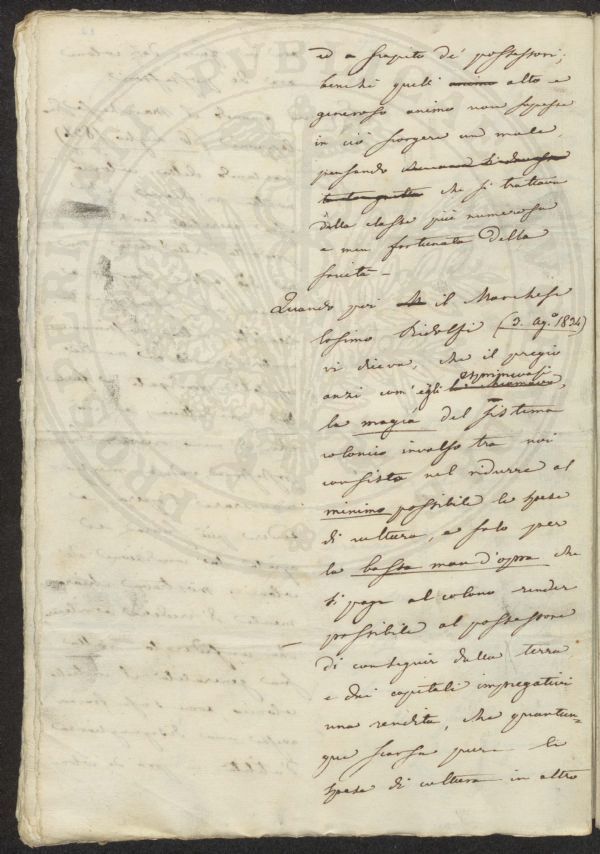 ed a scapito de' possessori;
benchè quell' animo alto e
generoso animo non sapesse
in ciò scorgere un male,
pensando
che si trattava
della classe più numerosa
e men fortunata della
società —
Quando poi il Marchese
Cosimo Ridolfi (3. Ag.o 1834)
vi diceva, che il pregio
anzi com' egli esprimevasi
la magia del sistema
colonico invalso tra noi
consista nel ridurre al
minimo possibile le spese
di cultura, e solo per
la bassa man d'opra che
si paga al colono render
possibile al possessore
di conseguir dalla terra
e dai capitali impiegativi
una rendita, che quantun=
que scarsa pure le
spese di cultura in altro